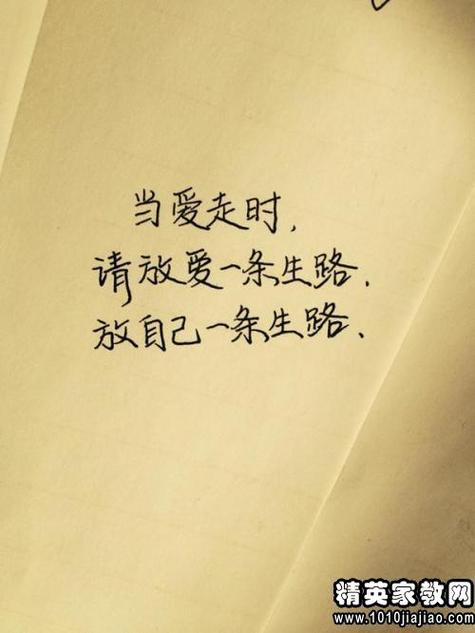 当爱走时,
请放爱一条生路.
放自己一条生路.
精英家教网
www.1010jiajiao.com